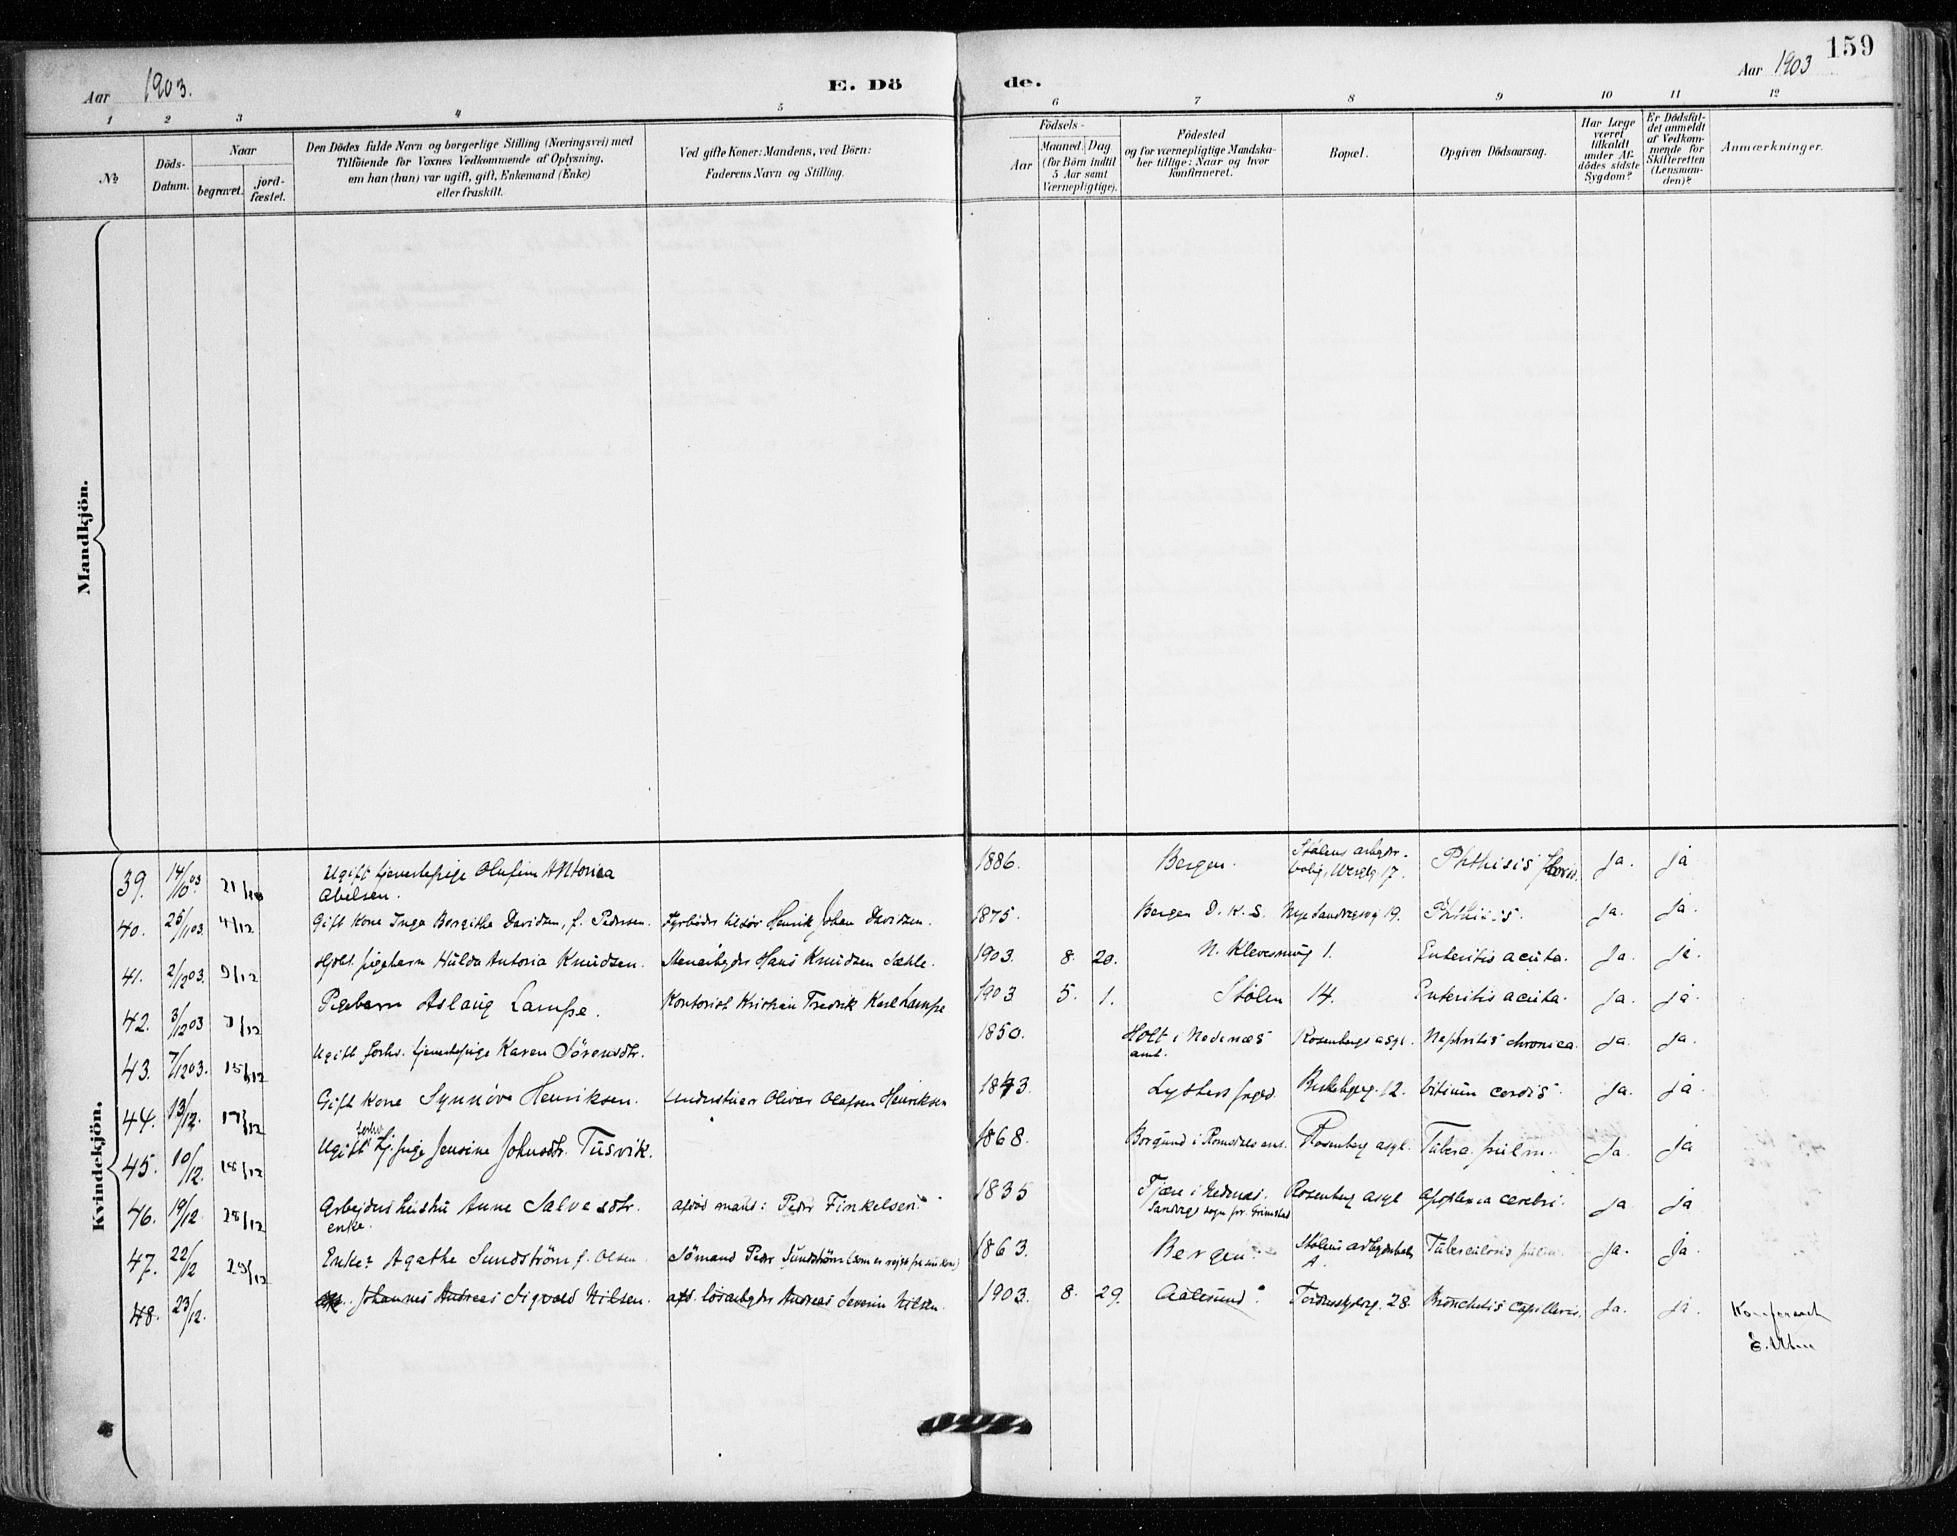 159
Aar 1903.
E. Dö
de.
Aar 1903
1 2 3 4 5 6 7 8 9 10 11 12
№
Döds-
Datum.
Naar
begravet.
jord-
fæstet.
Den Dödes fulde Navn og borgerlige Stilling (Næringsvei) med
Tilföiende for Voxnes Vedkommende af Oplysning,
om han (hun) var ugift, gift, Enkemand (Enke)
eller fraskilt.
Ved gifte Koner: Mandens, ved Börn:
Faderens Navn og Stilling.
Födsels-
Aar
Maaned. Dag
(for Börn indtil
5 Aar samt
Værnepligtige).
Födested
og for værnepligtige Mandska-
ber tillige: Naar og hvor
konfirmeret.
Bopæl.
Opgiven Dödsaarsag.
Har Læge
været
tilkaldt
under Af-
dödes sidste
Sygdom?
Er Dödsfal-
det anmeldt
af Vedkom-
mende for
Skifteretten
(Lensman-
den)?
Anmærkninger.
Mandkjön.
Kvindekjön.
39. 14/10 03. 21/10 Ugift tjenestepige Olufine Antonica 1886. Bergen. Stölens arbejder- Phthisis Ja. Ja
Abelsen. 17.
40. 25/11 03. 4/12 Gift Kone Inga Bergithe Davidsen, f. Pedersen. Fyrböder Henrik Johan Davidsen. 1875. Bergen D. K. S. Nye Sandvigsvej 19. Phthisis. Ja. Ja.
41. 2/12 03. 9/12 Pigebarn Hulda Antonia Knudzen. Stenarbejder Hans Knudzen Sæhle. 1903. 8. 20. N. 1. Enteritis acuta. Ja. Ja.
42. 3/12 03 9/12 Pigebarn Aslaug Lampe. Kontorist Kristian Fredrik Karl Lampe 1903 5. 1. Stölen 14. Enteritis acuta. Ja. Ja.
43. 7/12 03. 15/12 Ugift forhv. tjenestepige Karen Sörensdtr. 1850. Holt i Nedenæs Rosenbergs asyl. Nephritis chronica. Ja. Ja.
amt.
44. 13/12. 17/12 Gift Kone Synnöve Henriksen. Oliver Olafsen Henriksen 1843. 12. Vitium cordis. Ja. Ja
45. 10/12. 18/12 Ugift forhv. tj.pige Jensine Johnsdtr. Tusvik. 1868. Borgund i Romsdals amt. Rosenberg asyl. Tuberc. pulm. Ja. Ja
46. 19/12. 28/12 Arbejdershustru Anne Salvesdtr. afdöd mand: Peder Finkelsen. 1835 Fjære i Nedenæs. Rosenberg asyl Apoplexia cerebri. Ja Ja
enke.
47. 22/12 29/12 Enke? Agathe Sundström f. Olsen. Sömand Peder Sundström 1863. Bergen. Stölens Tuberculosis pulm. Ja. Ja.
A.
48. 23/12. Johannes Andreas Sigvald Nilsen. afd. lösarbejder Andreas Severin Nilsen. 1903. 8. 29. Aalesund. 28. Bronchitis capillaris. Ja. Ja.